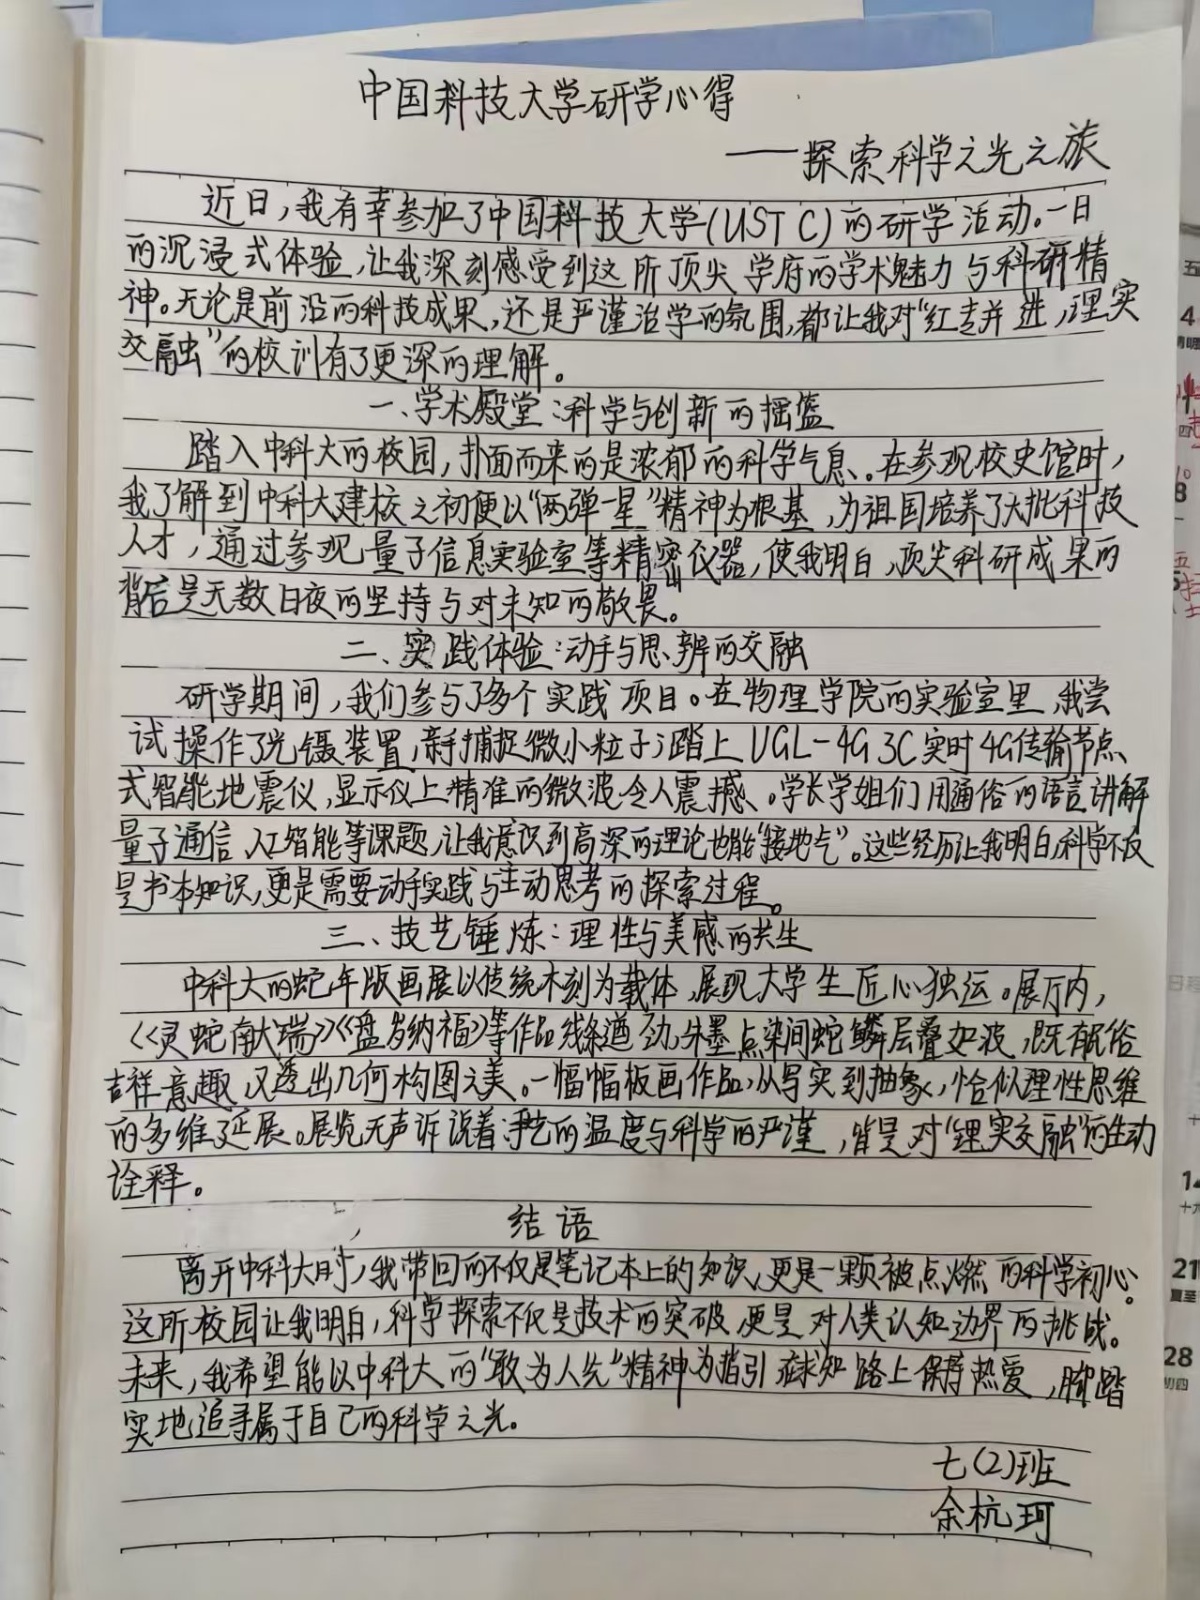 中国科技大学研学心得
——探索科学之光之旅
近日，我有幸参加了中国科技大学(USTC)的研学活动。一日
的沉浸式体验，让我深刻感受到这所顶尖学府的学术魅力与科研精
神。无论是前沿的科技成果，还是严谨治学的氛围，都让我对“红专并进，理实
交融”的校训有了更深的理解。
一、学术殿堂：科学与创新的摇篮
踏入中科大的校园，扑面而来的是浓郁的科学气息。在参观校史馆时，
我了解到中科大建校之初便以“两弹一星”精神为根基，为祖国培养了大批科技
人才，通过参观量子信息实验室等精密仪器，使我明白，顶尖科研成果的
背后是无数日夜的坚持与对未知的敬畏。
二、实践体验：动手与思辨的交融
研学期间，我们参与了多个实践项目。在物理学院的实验室里，我尝
试操作了光镊装置，亲手捕捉微小粒子；踏上UGL-4G3C实时4G传输节点
式智能地震仪，显示仪上精准的微波令人震撼。学长学姐们用通俗的语言讲解
量子通信、人工智能等课题，让我意识到高深的理论也能“接地气”。这些经历让我明白，科学不仅
是书本知识，更是需要动手实践与主动思考的探索过程。
三、技艺锤炼：理性与美感的共生
中科大的蛇年版画展以传统木刻为载体，展现大学生匠心独运。展厅内，
《灵蛇献瑞》《盘岁纳福》等作品线条遒劲，朱墨点染间蛇鳞层叠如波，既有民俗
吉祥意趣，又透出几何构图之美。一幅幅板画作品，从写实到抽象，恰似理性思维
的多维延展。展览无声诉说着手艺的温度与科学的严谨，皆是对“理实交融”的生动
诠释。
结语
离开中科大时，我带回的不仅是笔记本上的知识，更是一颗被点燃的科学初心。
这所校园让我明白，科学探索不仅是技术的突破，更是对人类认知边界的挑战。
未来，我希望能以中科大的“敢为人先”精神为指引，在求知路上保持热爱，脚踏
实地追寻属于自己的科学之光。
七(2)班
余杭珂